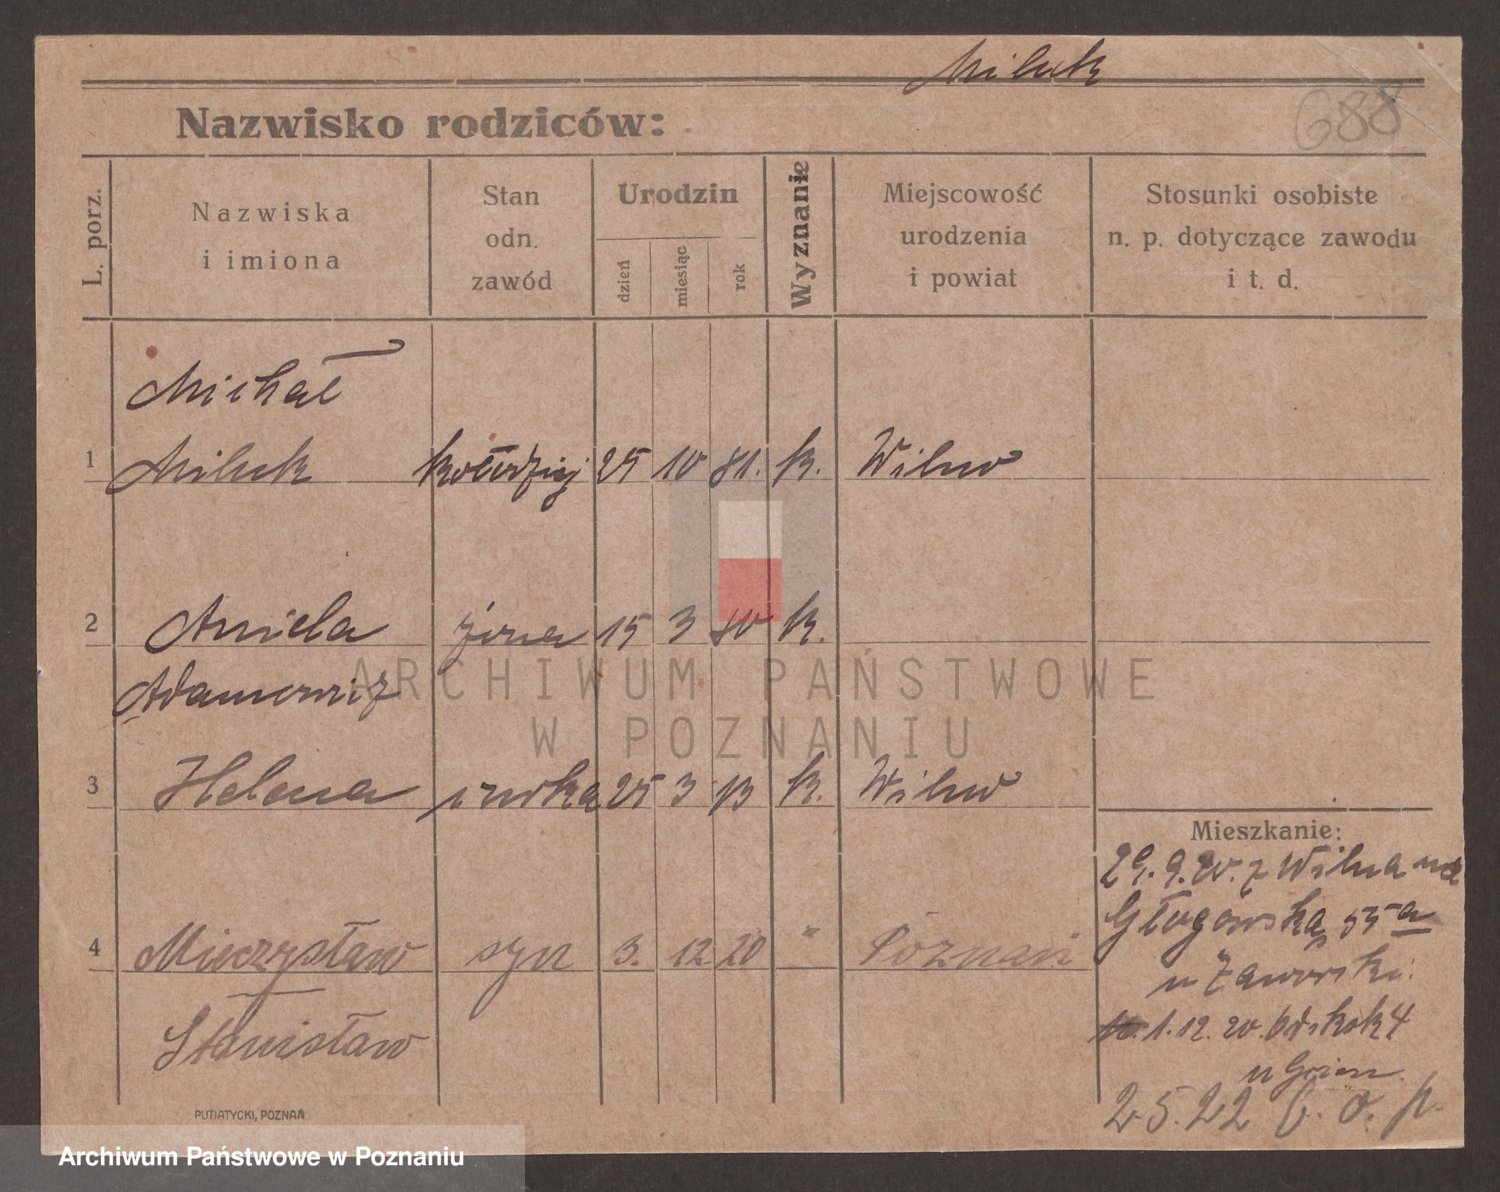 Miluk
688
Nazwisko rodziców:
L. porz.
Nazwiska
i imiona
Stan
odn.
zawód
Urodzin
dzień
miesiąc
rok
Wyznanie
Miejscowość
urodzenia
i powiat
Stosunki osobiste
n. p. dotyczące zawodu
i t. d.
Michał
1 Miluk kołodziej 25 10 81. k. Wilno
2 Aniela żona 15 3 80 k.
Adamowicz
3 Helena córka 25 3 13 k. Wilno
Mieszkanie:
29.9.20. z Wilna na
Głogowską 55a
4 Mieczysław syn 3. 12 20 " Poznań
u Zaworski.
1.12.20.
Stanisław
u
2.5.22 b. o. p.
PUTIATYCKI, POZNAŃ
ARCHIWUM PAŃSTWOWE
W POZNANIU
Archiwum Państwowe w Poznaniu